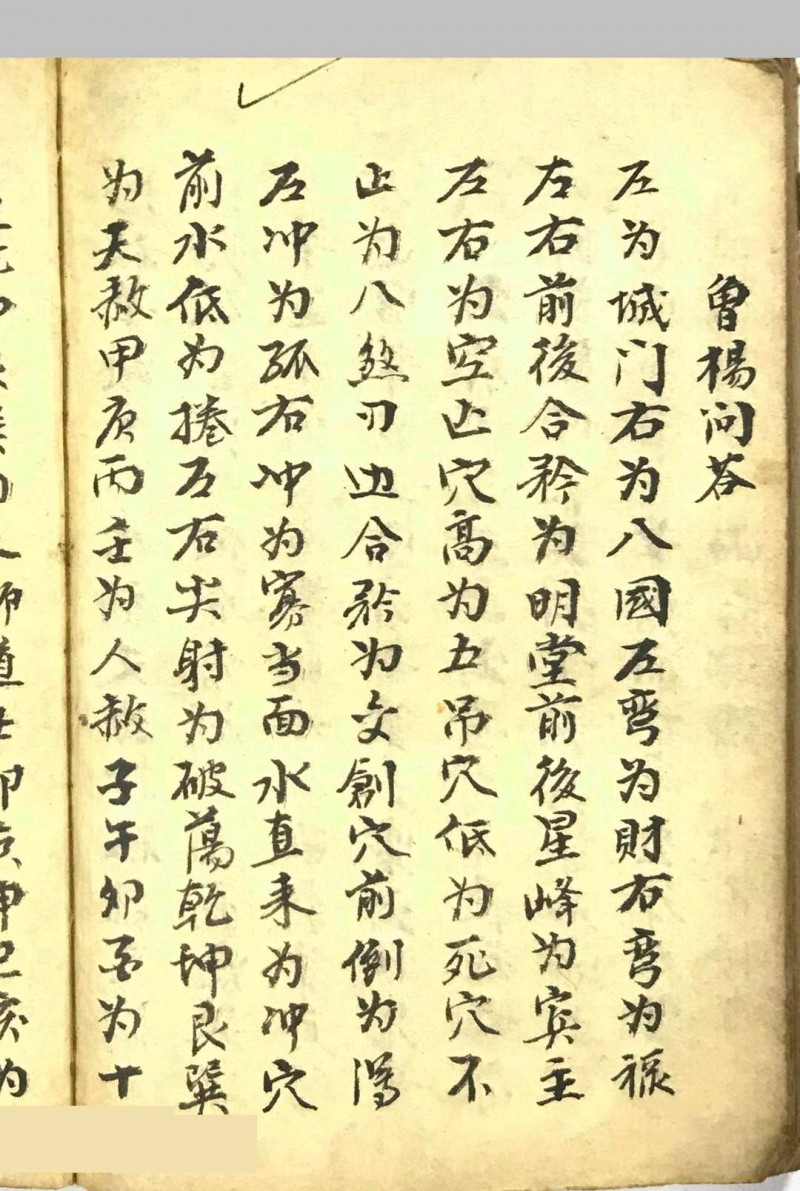 曾楊问答
左为城门右为八國左弯为財右弯为祿
左右前後合矜为明堂前後星峰为賓主
左右为空亡穴高为五吊穴低为死穴不
止为八煞刃边合矜为文劍穴前倒为
左冲为孤右冲为寡当面水直来为冲穴
前水低为捲左右尖射为破蕩乾坤艮巽
为天赦甲庚丙壬为人赦子午卯酉为十